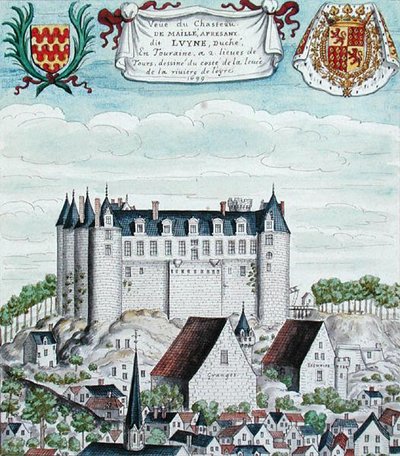 Veuë du Chasteau
DE MAILLÉ, APRESANT
dit LVYNE, Duché,
En Touraine, a 2 lieues de
Tours, dessiné du costé de la leuée
de la riviére de
1699
Granges